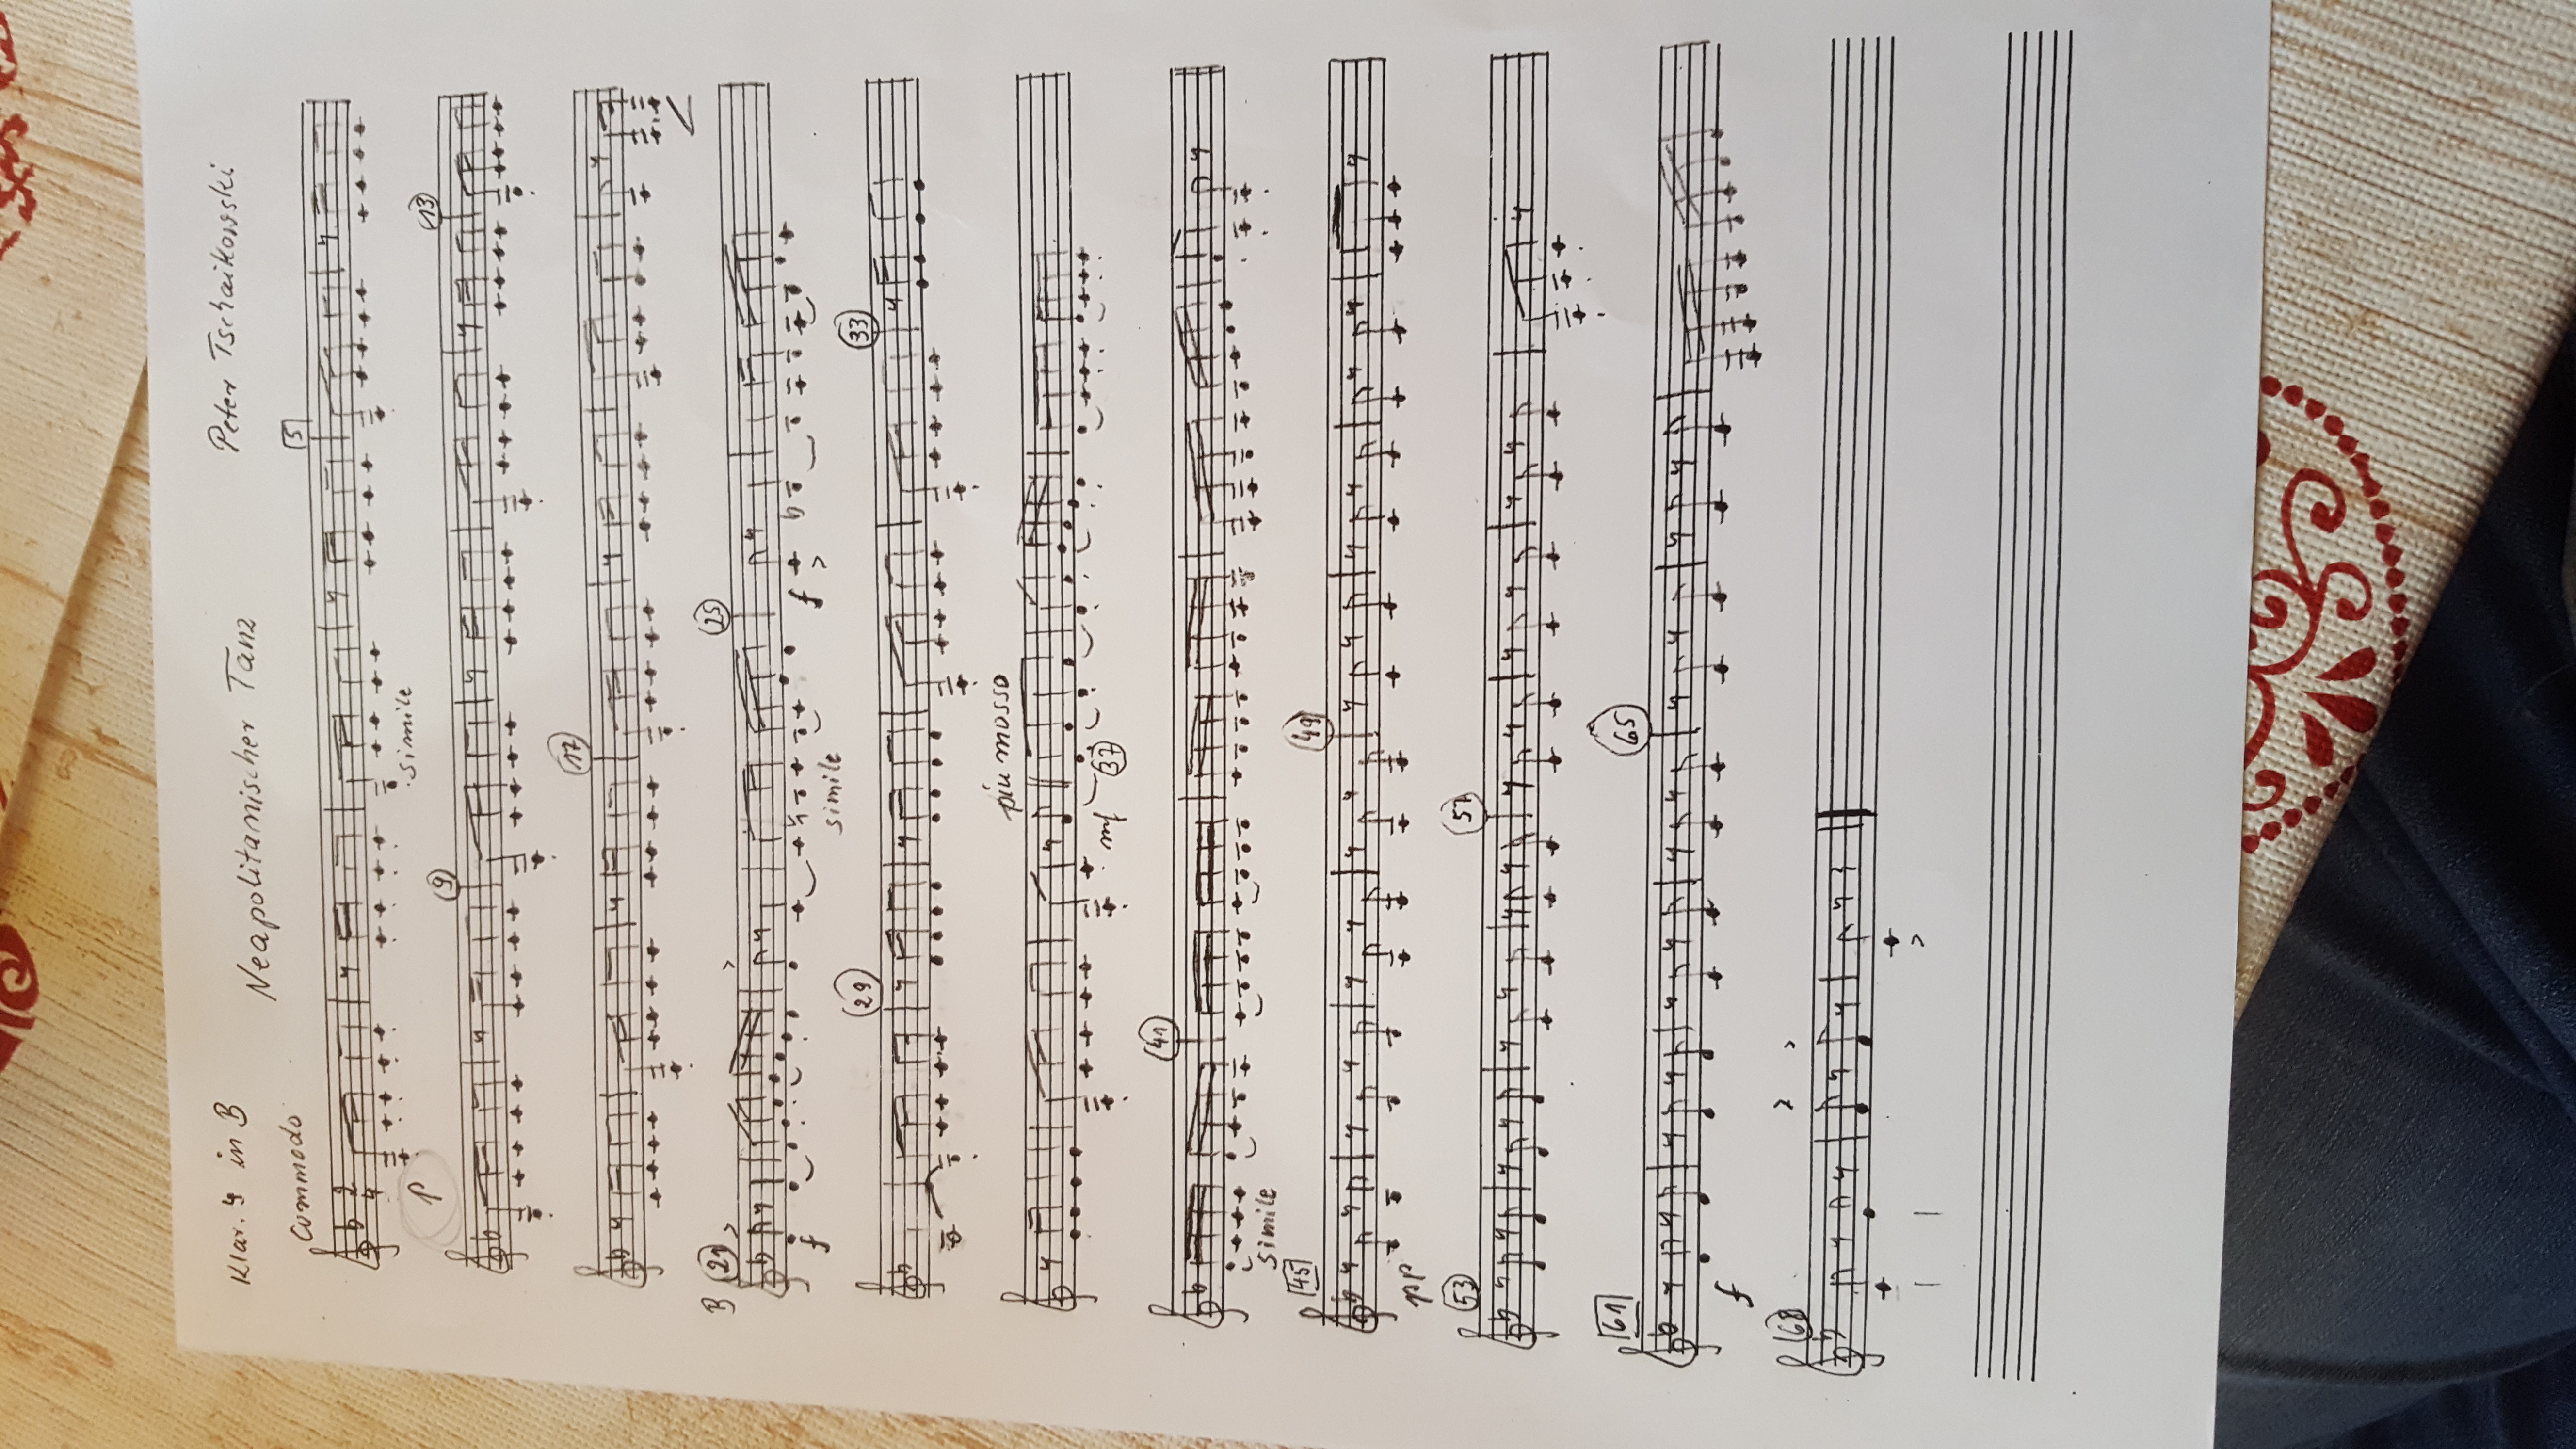 Klar. 4 in B
Neapolitanischer Tanz
Peter Tschaikowski
Commodo
2
4
5
p
simile
9
13
17
B 21
25
f
f
simile
29
33
piu mosso
mf
37
41
simile
45
49
pp
53
57
61
65
f
68